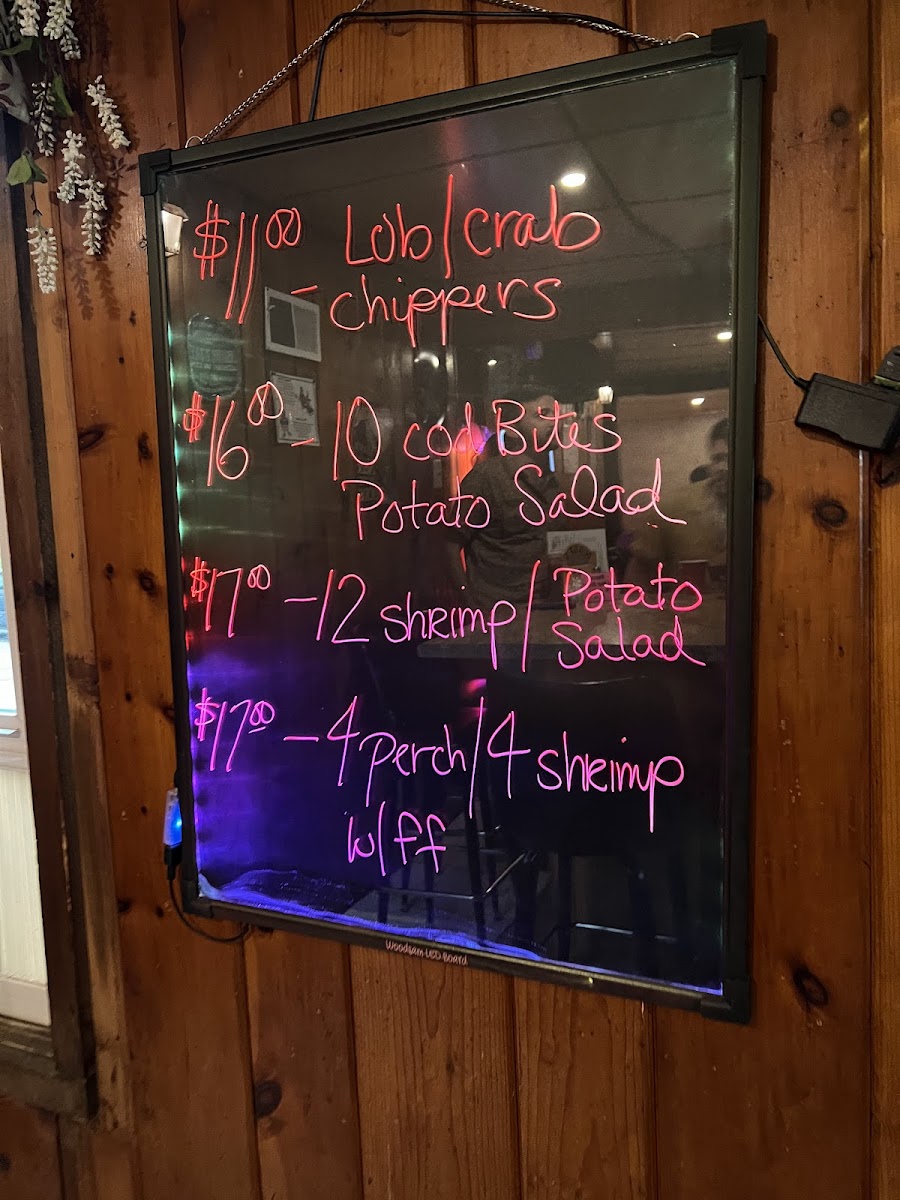 $11.00 Lob/crab
- chippers
$16.00 - 10 cod Bites
Potato Salad
$17.00 - 12 shrimp / Potato
Salad
$17.00 - 4 perch / 4 shrimp
w/ff
Woodsam LED Board